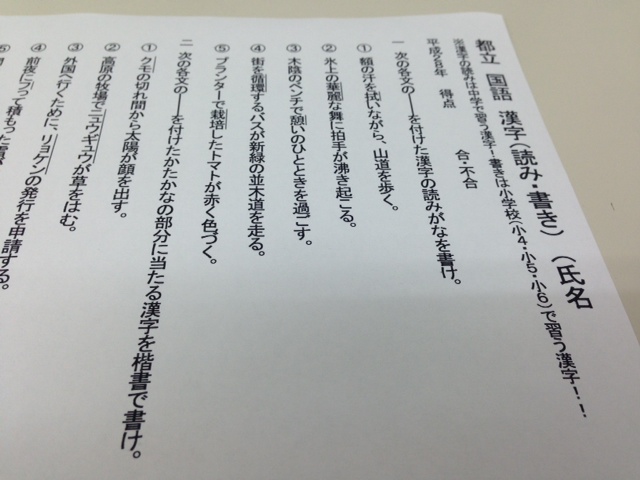 都立 国語 漢字(読み・書き) (氏名
※漢字の読みは中学で習う漢字!書きは小学校(小4・小5・小6)で習う漢字!!
平成26年 得点 合・不合
一 次の各文の――を付けた漢字の読みがなを書け。
① 額の汗を拭いながら、山道を歩く。
② 氷上の華麗な舞に拍手が沸き起こる。
③ 木陰のベンチで憩いのひとときを過ごす。
④ 街を循環するバスが新緑の並木道を走る。
⑤ プランターで栽培したトマトが赤く色づく。
二 次の各文の――を付けたかたかなの部分に当たる漢字を楷書で書け。
① クモの切れ間から太陽が顔を出す。
② 高原の牧場でニュウギュウが草をはむ。
③ 外国へ行くために、リョケンの発行を申請する。
④ 前夜につって積もった雪が
⑤